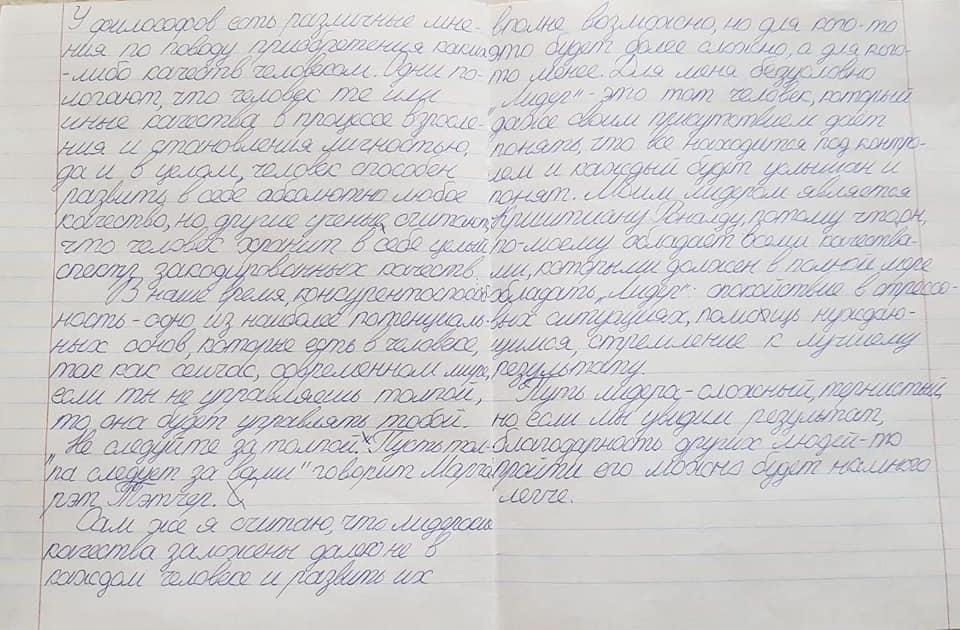 У философов есть различные мне-
ния по поводу приобретения каких
-либо качеств человеком. Одни по-
логают, что человек те или
иные качества в процессе взросле-
ния и становления личностью,
да и в целом, человек способен
развить в себе абсолютно любое
качество, но, другие ученые считают,
что человек хранит в себе целый
спектр закодированных качеств.
В наше время, конкурентоспособ-
ность - одно из наиболее потенциаль-
ных основ, которые есть в человеке,
так как сейчас, современном мире,
если ты не управляешь толпой,
то она будет управлять тобой.
„Не следуйте за толпой. Пусть тол-
па следует за вами" говорит Марга
рэт Тэтчер.
Сам же я считаю, что лидерские
качества заложены далеко не в
каждом человеке и развить их
вполне возможно, но для кого-то
это будет более сложно, а для кого-
то менее. Для меня безусловно
„Лидер" - это тот человек, который
даже своим присутствием даёт
понять, что все находится под контро-
лем и каждый будет услышан и
понят. Моим лидером является
Криштиану Роналду, потому что он,
по-моему обладает всеми качества-
ми, которыми должен в полной мере
обладать „Лидер": спокойствие в стрессо-
вых ситуациях, помощь нуждаю-
щимся, стремление к лучшему
результату.
Путь лидера - сложный, тернистый,
но если мы увидим результат,
благодарность других людей - то
пройти его можно будет намного
легче.